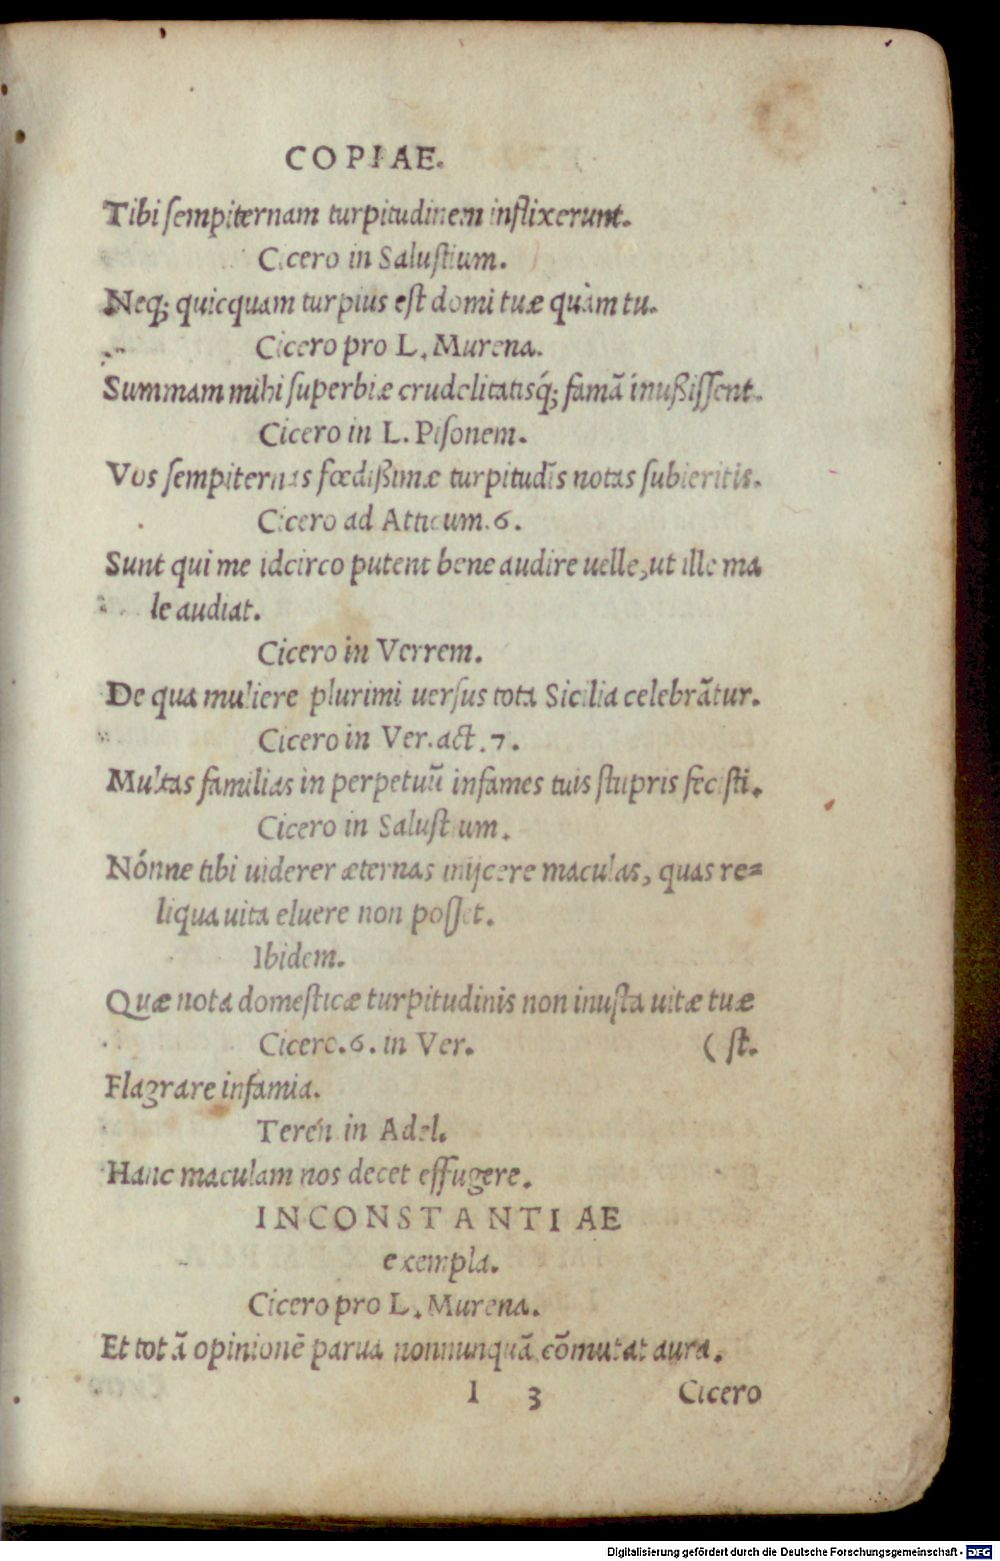 COPIAE.
Tibi sempiternam turpitudinem inflixerunt.
Cicero in Salustium.
Neq; quicquam turpius est domi tuæ quàm tu.
Cicero pro L. Murena.
Summam mihi superbiæ crudelitatisq́; famā inußissent.
Cicero in L. Pisonem.
Vos sempiternas fœdißimæ turpitudīs notas subieritis.
Cicero ad Atticum.6.
Sunt qui me idcirco putent bene audire uelle, ut ille ma
le audiat.
Cicero in Verrem.
De qua muliere plurimi uersus tota Sicilia celebrātur.
Cicero in Ver. act.7.
Multas familias in perpetuū infames tuis stupris fecisti.
Cicero in Salustium.
Nónne tibi uiderer æternas inijcere maculas, quas re=
liqua uita eluere non posset.
Ibidem.
Quæ nota domesticæ turpitudinis non inusta uitæ tuæ
Cicero.6. in Ver. (st.
Flagrare infamia.
Teren in Adel.
Hanc maculam nos decet effugere.
INCONSTANTIAE
exempla.
Cicero pro L. Murena.
Et totā opinionē parua nonnunquā cōmutat aura.
I 3 Cicero
Digitalisierung gefördert durch die Deutsche Forschungsgemeinschaft - DFG